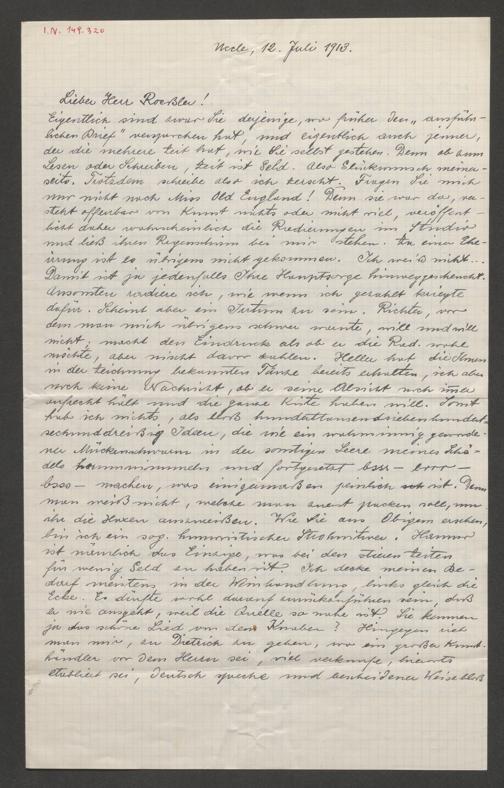 I.N. 149.320
Uccle, 12. Juli 1913.
Lieber Herr Roessler!
Eigentlich sind zwar Sie derjenige, wo früher den „ausführ-
lichen Brief" versprochen hat, und eigentlich auch jener,
der die mehrere Zeit hat, wie Sie selbst gestehen. Denn ob zum
Lesen oder Schreiben, Zeit ist Geld. Also Glückwunsch meiner-
seits. Trotzdem schreibe also ich zuerst. Fragen Sie mich
nur nicht nach Miss Old England! Denn sie war da, ver-
steht offenbar von Kunst nichts oder nicht viel, veröffent-
licht daher wahrscheinlich die Radierungen im Studio
und ließ ihren Regenschirm bei mir stehen. Zu einer Ehe-
irrung ist es übrigens nicht gekommen. Ich weiß nicht...
Damit ist ja jedenfalls Ihre Hauptsorge hinweggescheucht.
Ansonsten radiere ich, wie wenn ich gezahlt kriegte
dafür. Scheint aber ein Irrtum zu sein. Richter, vor
dem man mich übrigens schon warnte, will und will
nicht; macht den Eindruck als ob er die Rad. wohl
möchte, aber nicht davor zahlen. Heller hat die
in der Zeichnung bekannten bereits erhalten, ich aber
noch keine Nachricht, ob er seine Absicht noch immer
aufrecht hält und die ganze Kiste haben will. Sonst
hab ich nichts, als bloß hunderttausendsiebenhundert-
sechsunddreißig Ideen, die wie ein wahnsinnig geworde-
ner Mückenschwarm in der sonstigen Leere meines Schä-
dels herumwimmeln und fortgesetzt bssr - brrr -
bsso - machen, was einigermaßen peinlich ist. Denn
man weiß nicht, welche man zuerst packen soll, um
ihr die Haxen auszureißen. Wie Sie aus Obigem ersehen,
bin ich ein sog. humoristischer Humor
ist nämlich das Einzige, was bei den teuren Zeiten
für wenig Geld zu haben ist. Ich decke meinen Be-
darf meistens in der Weinhandlung, links gleich die
Ecke. Es dürfte wohl darauf zurückzuführen sein, daß
er nie ausgeht, weil die Quelle so nahe ist. Sie kennen
ja das schöne Lied von dem Knaben? Hingegen riet
man mir, zu Dietrich zu gehen, wo ein großer Kunst-
händler vor dem Herrn sei, viel verkaufe, hierorts
etabliert sei, Deutsch spreche und bescheidener Weise bloß